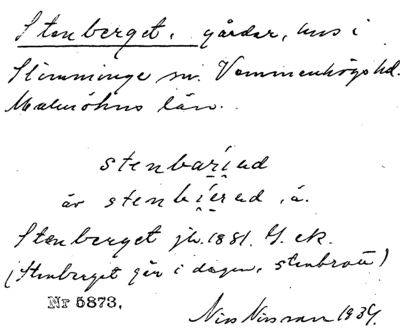 Stenberget, gårdar, hus i
Slimminge sn. Vemmenhögs hd.
Malmöhus län.
stenbaríad
äv stenbíerad, ä.
Stenberget jb. 1881. G. ek.
(Stenberget går i dagen, stenbrott)
Nr 5873.
Nils Nilsson 1934.